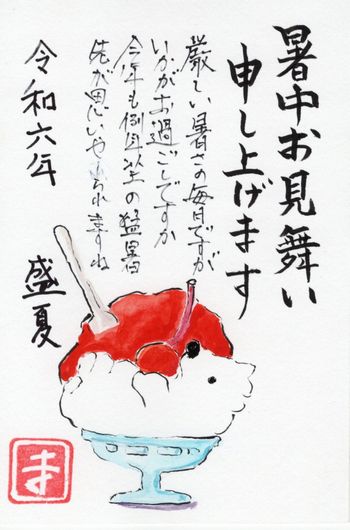 暑中お見舞い
申し上げます
厳しい暑さの毎日ですが
いかがお過ごしですか
今年も例年以上の猛暑
先が思いやられますね
令和六年
盛夏
ま